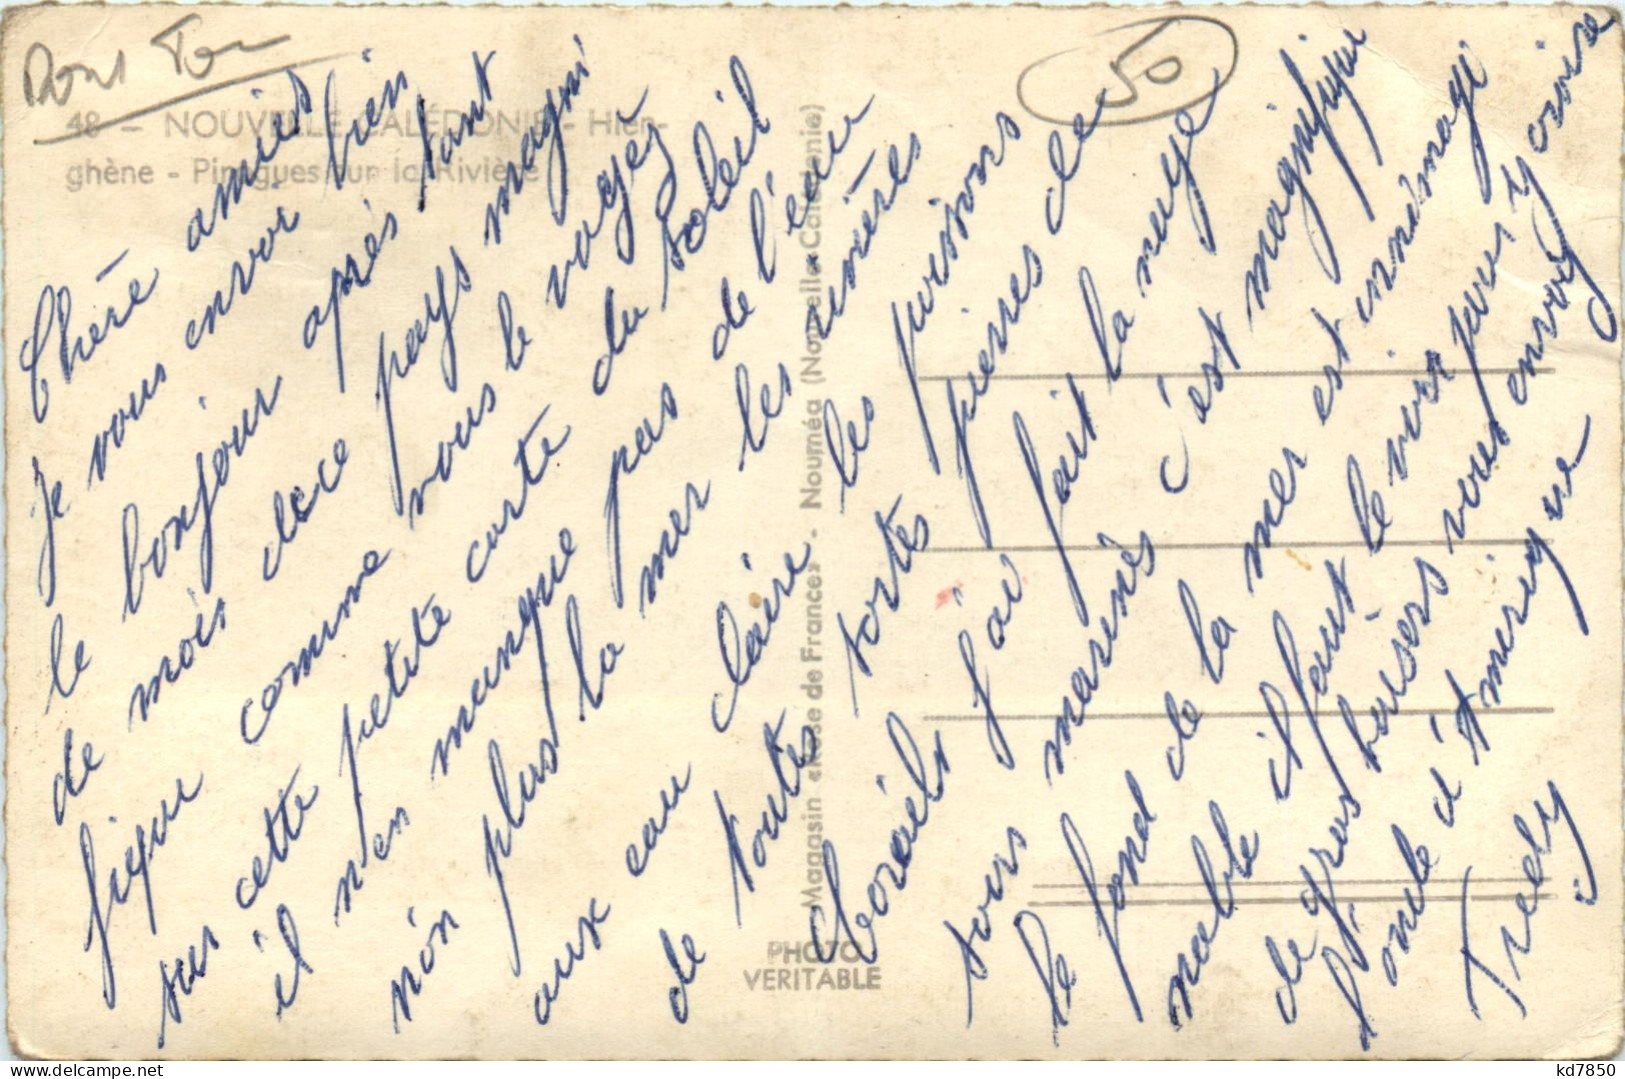 50
48 – NOUVELLE CALÉDONIE - Hien-
ghène - Pirogues sur la Rivière
Chère amies
je vous envoi bien
le bonjour après tant
de mois dece pays magni
fiqu comme vous le voyez
sur cette petite carte du soleil
il men manque pas de l'eau
nón plus la mer les rivières
aux eau claire les poissons
de toutes sortes pierres de
Corails j'ai fait la nage
sous marinés c'est magnifique
le fond de la mer est innimagi
nable il faut le voir pour y croire
de gros baisers vous envoy
l'oncle d'Amerique
Tredy
Magasin «Rose de France» - Nouméa (Nouvelle-Calédonie)
PHOTO
VERITABLE
kd7850